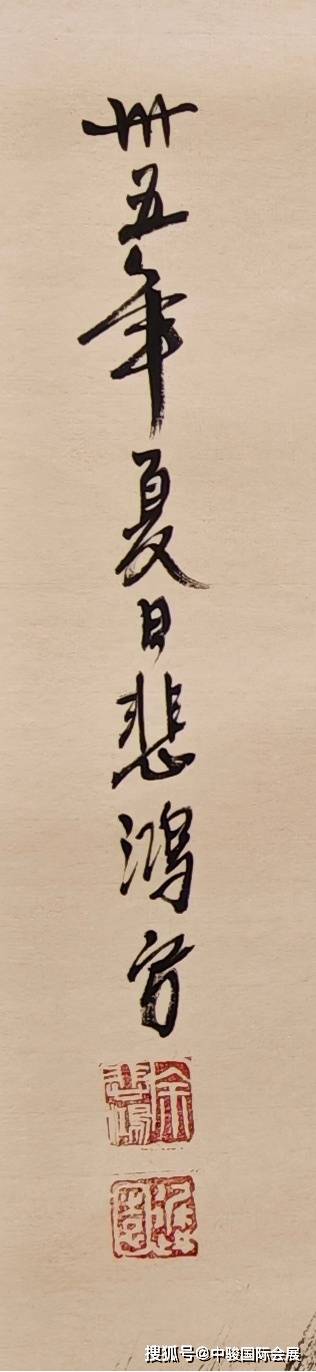 卅五年夏日悲鴻寫
徐悲鴻
搜狐号@中骏国际会展